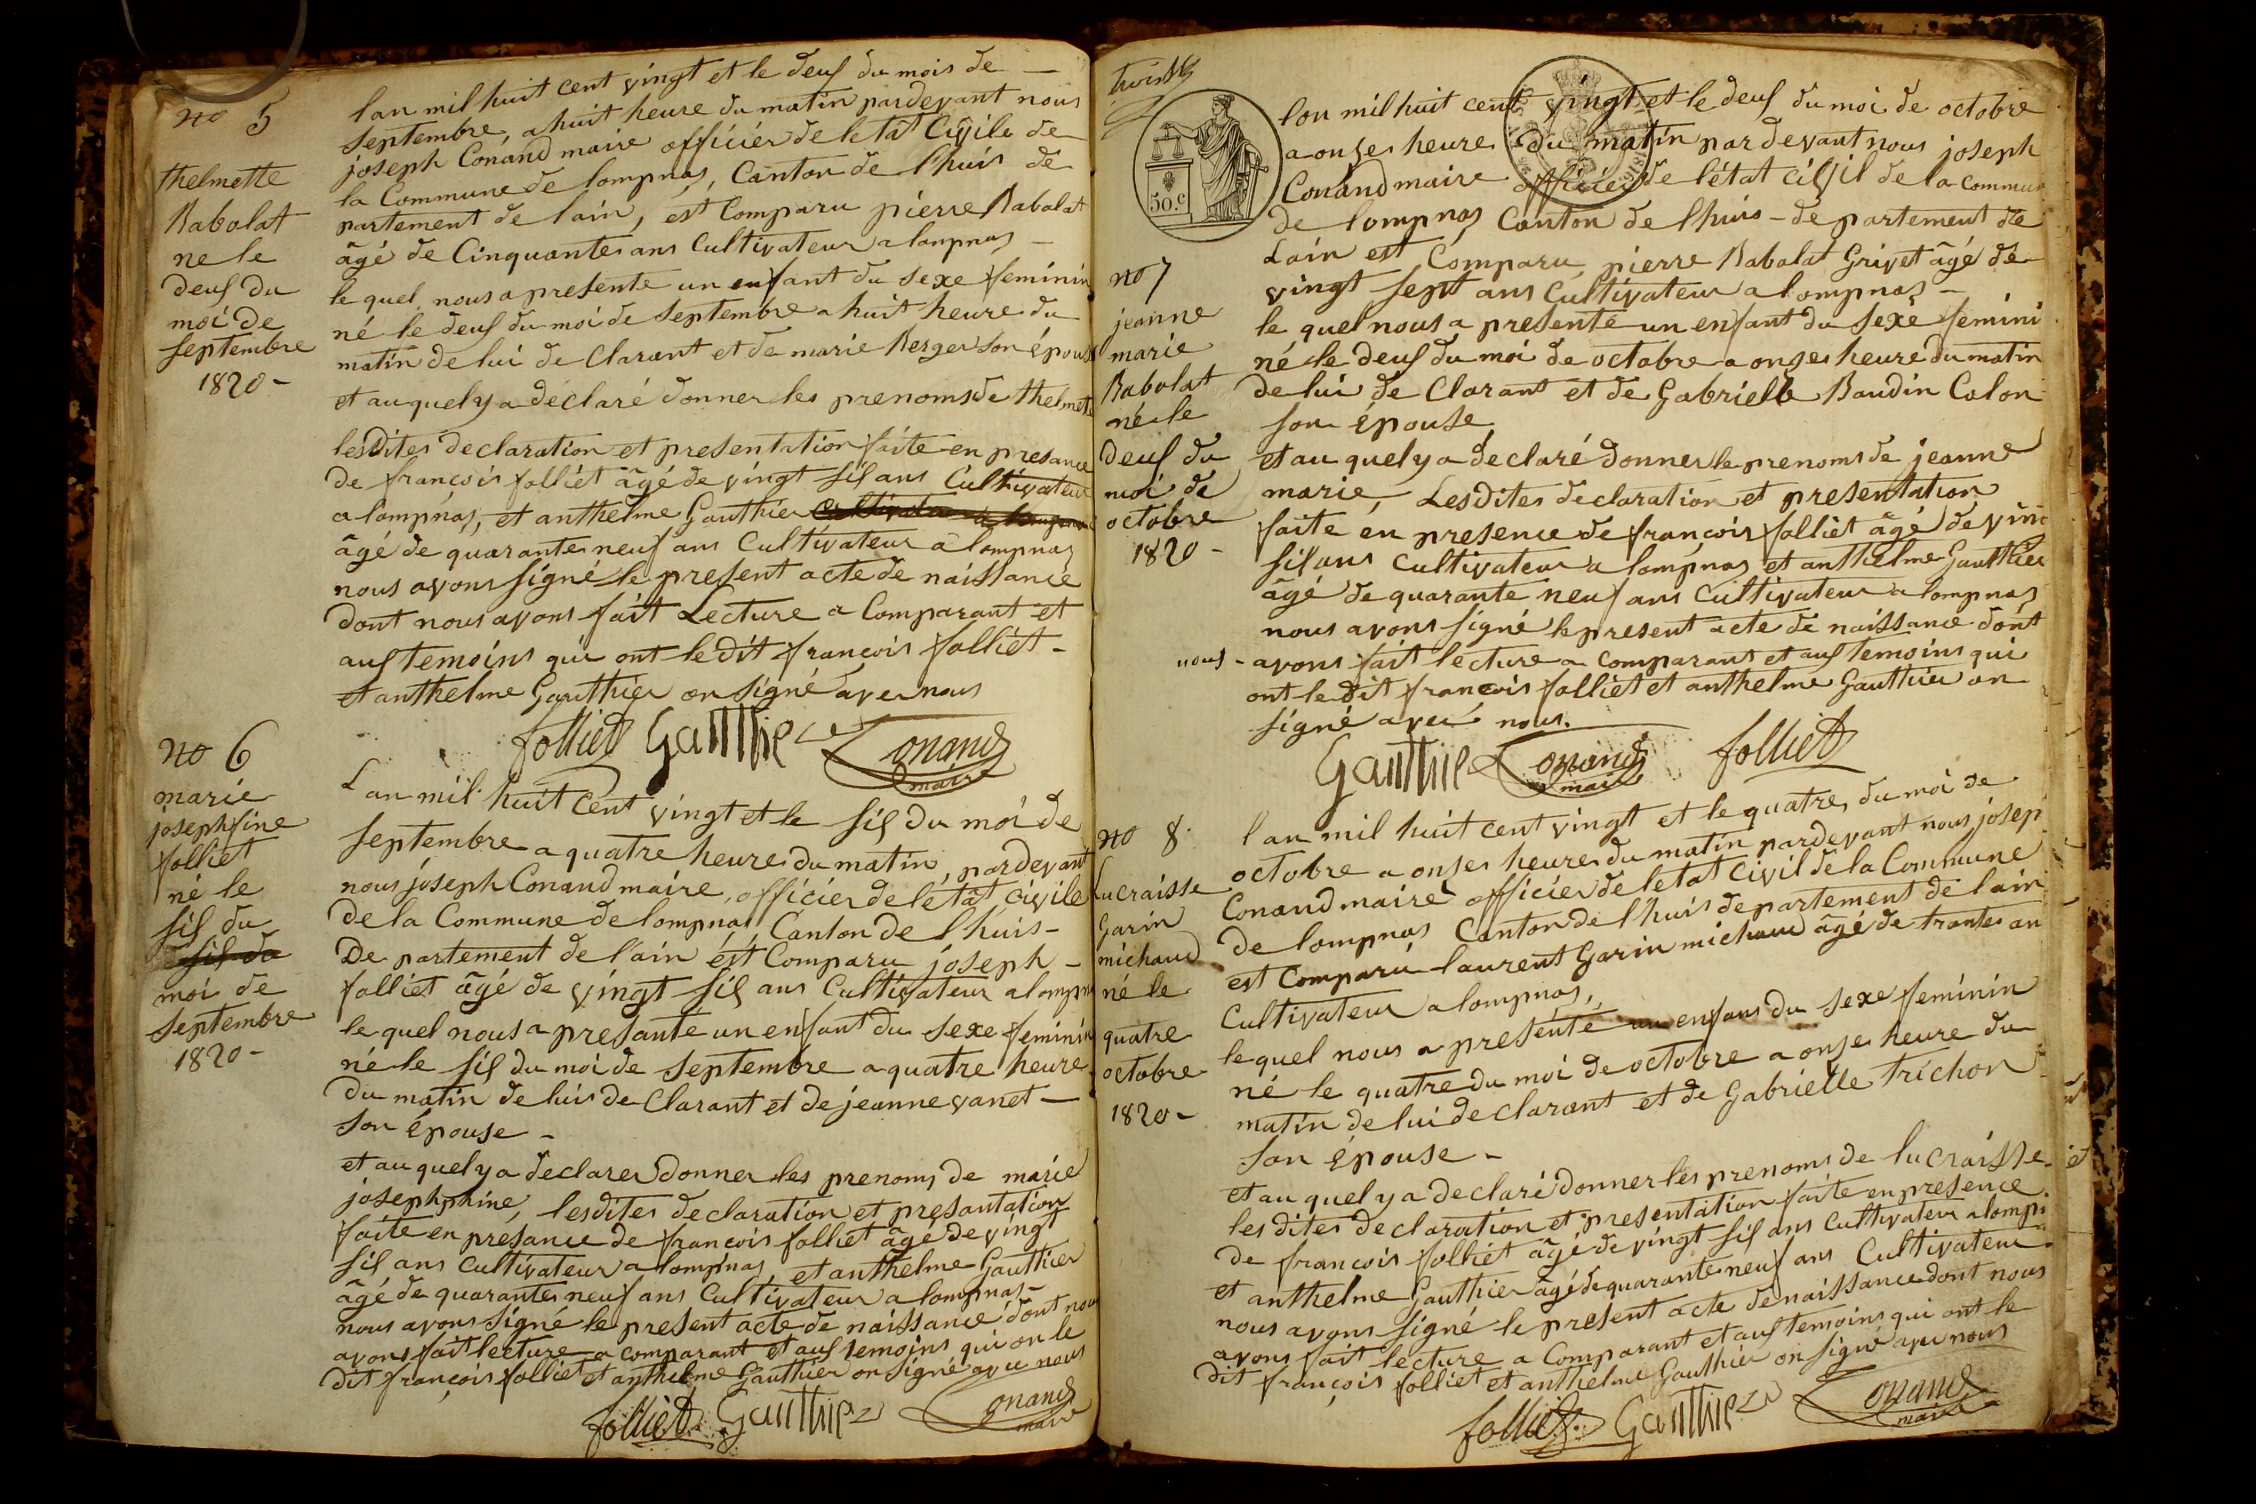 no 5
thelmette
Babolat
ne le
deuf du
moi de
septembre
1820 -
lan mil huit cent vingt et le deuf du mois de -
septembre, a huit heure du matin pardevant nous
joseph Conand maire officier de letat Civile de
la Commune de lompnas, Canton de l'huis de
partement de lain, est Comparu pierre Babolat
âgé de Cinquantes ans Cultivateur a lompnas -
le quel nous a presente un enfant du sexe feminin
né le deuf du moi de septembre a huit heure du
matin de lui de Clarant et de marie Berger son épouse
et auquel y a déclaré donner les prenoms de thelmete
lesdites declaration et presentation faite en presance
de françois folliet âgé de vingt sis ans Cultivateur
a lompnas, et anthelme Gauthier Cultivateur a lompnas
âgé de quarantes neuf ans Cultivateur a lompnas
nous avons signé le present acte de naissance
dont nous avons fait Lecture a Comparant et
auf temoins qui ont ledit françois folliet -
et anthelme Gauthier on signé avec nous
folliet Gauthier Conand
maire
no 6
marie
josephfine
folliet
né le
sis du
sis du
moi de
septembre
1820 -
Lan mil huit Cent vingt et le sis du moi de
septembre a quatre heure du matin, pardevant
nous joseph Conand maire, officier de letat civile
de la Commune de lompnas, Canton de l'huis -
De partement de l'ain est Comparu joseph -
folliet âgé de vingt sis ans Cultivateur a lompnas
le quel nous a presante un enfant du sexe feminin
né le sis du moi de septembre a quatre heure
du matin de lui de Clarant et de jeanne vanet -
son épouse -
et au quel y a declarer donner les prenoms de marie
josephphine, lesdites declaration et presantation
faite en presance de francois folliet âgé de vingt
sis ans Cultivateur a lompnas, et anthelme Gauthier
âgé de quarantes neuf ans Cultivateur a lompnas -
nous avons signé le present acte de naissance dont nous
avons fait lecture a comparant et auf temoins qui on le
dit françois folliet et anthelme Gauthier on signé avec nous
folliet Gauthier Conand
maire
trois
50. c
no 7
jeanne
marie
Babolat
né le
deuf du
moi de
octobre
1820 -
lan mil huit cent vingt et le deuf du moi de octobre
a onses heure du matin par devant nous joseph
Conand maire officier de l'état civil de la commun
de lompnas Canton de l'huis - de partement de
Lain est Comparu pierre Babolat Grivet âgé de
vingt sept ans Cultivateur a lompnas -
le quel nous a presenté un enfant du sexe femini
né le deuf du moi de octobre a onses heure du matin
de lui de Clarant et de Gabrielle Baudin Colon
son épouse
et au quel y a declaré donner le prenoms de jeanne
marie, Lesdites declaration et presentation
faite en presence de françois folliet âgé de ving
sis ans Cultivateur a lompnas et anthelme Gauthier
âgé de quarante neuf ans Cultivateur a lompnas
nous avons signé le present acte de naissance dont
nous - avons fait lecture a comparant et auf temoins qui
ont le dit francois folliet et anthelme Gauthier on
signé avec nous.
Gauthier Conand folliet
maire
no 8
Lucraisse
Garin
michaud
né le
quatre
octobre
1820 -
lan mil huit cent vingt et le quatres du moi de
octobre a onses heure du matin pardevant nous josep
Conand maire officier de letat Civil de la Commune
de lompnas Canton de l'huis departement de lain
est Comparu laurent Garin michaud âgé de trantes an
Cultivateur a lompnas,
lequel nous a presenté un enfans du sexe feminin
né le quatre du moi de octobre a onses heure du
matin de lui declarant et de Gabrielle trichon
son épouse -
et au quel y a declaré donner les prenoms de lucraisse
les dites declaration et presentation faite en presence
de francois folliet âgé de vingt sis ans Cultivateur a lomp
et anthelme Gauthier âgé de quarante neuf ans Cultivateur
nous avons signé le present acte de naissance dont nous
avons fait lecture a Comparant et auf temoins qui ont le
dit françois folliet et anthelme Gauthier on signé avec nous
folliet Gauthier Conand
maire